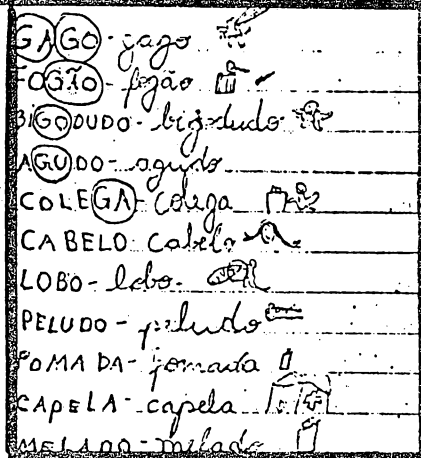 GAGO - gago
FOGÃO - fogão
BIGODUDO - bigodudo
AGUDO - agudo
COLEGA - colega
CABELO - cabelo
LOBO - lobo
PELUDO - peludo
POMADA - pomada
CAPELA - capela
MELADO - melado